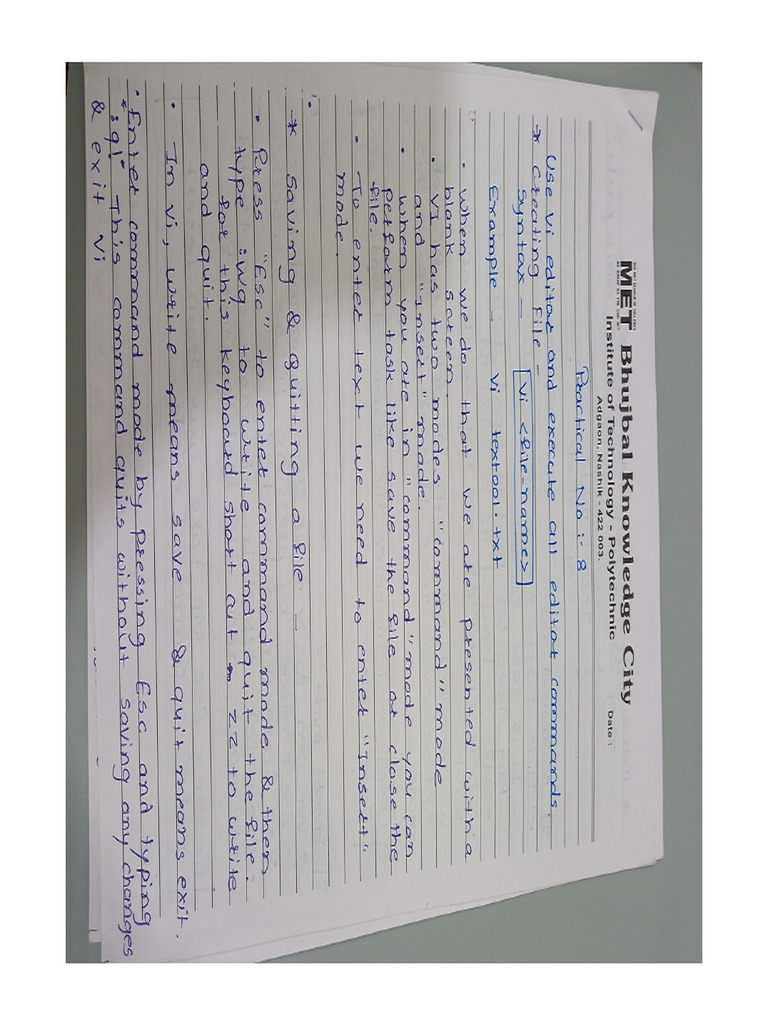 MET Bhujbal Knowledge City
Institute of Technology - Polytechnic
Adgaon, Nashik - 422 003.
Date :
Practical No :- 8
Use Vi editor and execute all editor commands.
* Creating File -
Syntax - Vi <file-name>
Example - Vi textool.txt
• When we do that we are presented with a
blank screen.
• VI has two modes "command" mode
and "insert" mode.
• When you are in "command" mode you can
perform task like save the file or close the
file.
• To enter text we need to enter "Insert"
mode.
* Saving & Quitting a file -
• Press "Esc" to enter command mode & then
type :wq to write and quit the file.
for this keyboard short cut - ZZ to write
and quit.
• In vi, write means save & quit means exit.
• Enter command mode by pressing Esc and typing
":q!" This command quits without saving any changes
& exit Vi